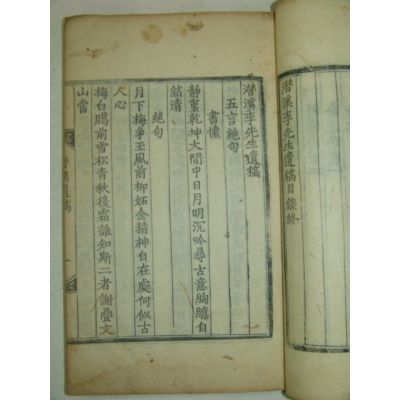 潛溪李先生遺稿目錄終
潛溪李先生遺稿
五言絶句
書懷
靜裏乾坤大閒中日月明沉吟尋古意胸臆自
然淸
絶句
月下梅爭玉風前柳妬金精神自在處何似古
人心
梅白臘前雪松青秋後霜誰知斯二者謝疊文
山當
潛溪遺稿